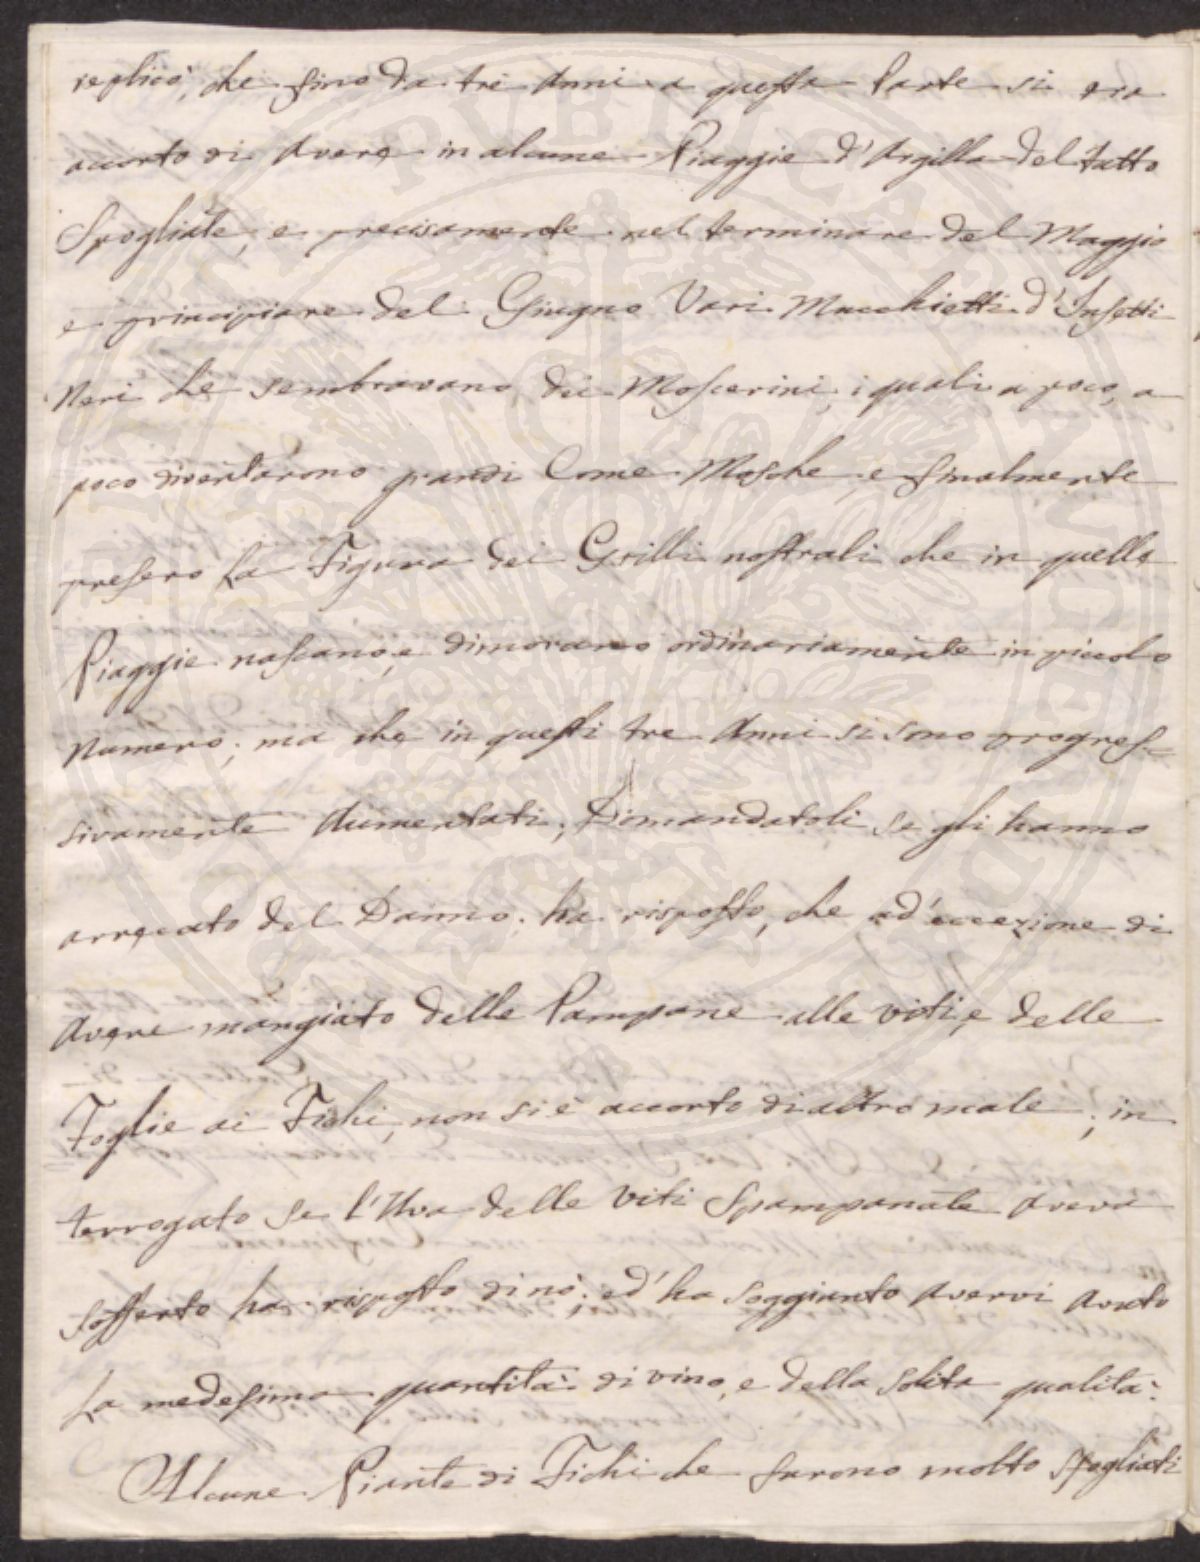 replicò, che fino da tre Anni a questa Parte si era
accorto di Avere in alcune Piaggie d'Argilla del tutto
Spogliate, e precisamente nel terminare del Maggio
e principiare del Giugno Vari Mucchietti d'Insetti
Neri che sembravano dei Moscerini, i quali a poco, a
poco diventarono grandi Come Mosche, e finalmente
presero La Figura dei Grilli nostrali che in quelle
Piaggie nascano, e dimorano ordinariamente in piccolo
Numero, ma che in questi tre Anni si sono progres=
sivamente Aumentati; Dimandatoli se gli hanno
arrecato del Danno. ha risposto, che ad'eccezione di
Avere mangiato delle Pampane alle viti, e delle
Foglie ai Fichi, non si è accorto di altro male; in
terrogato se l'Uva delle Viti Spampanate Aveva
Sofferto ha risposto di nò; ed'ha soggiunto Avervi Avuto
La medesima quantità di vino, e della solita qualità.
Alcune Piante di Fichi che furono molto Sfogliati